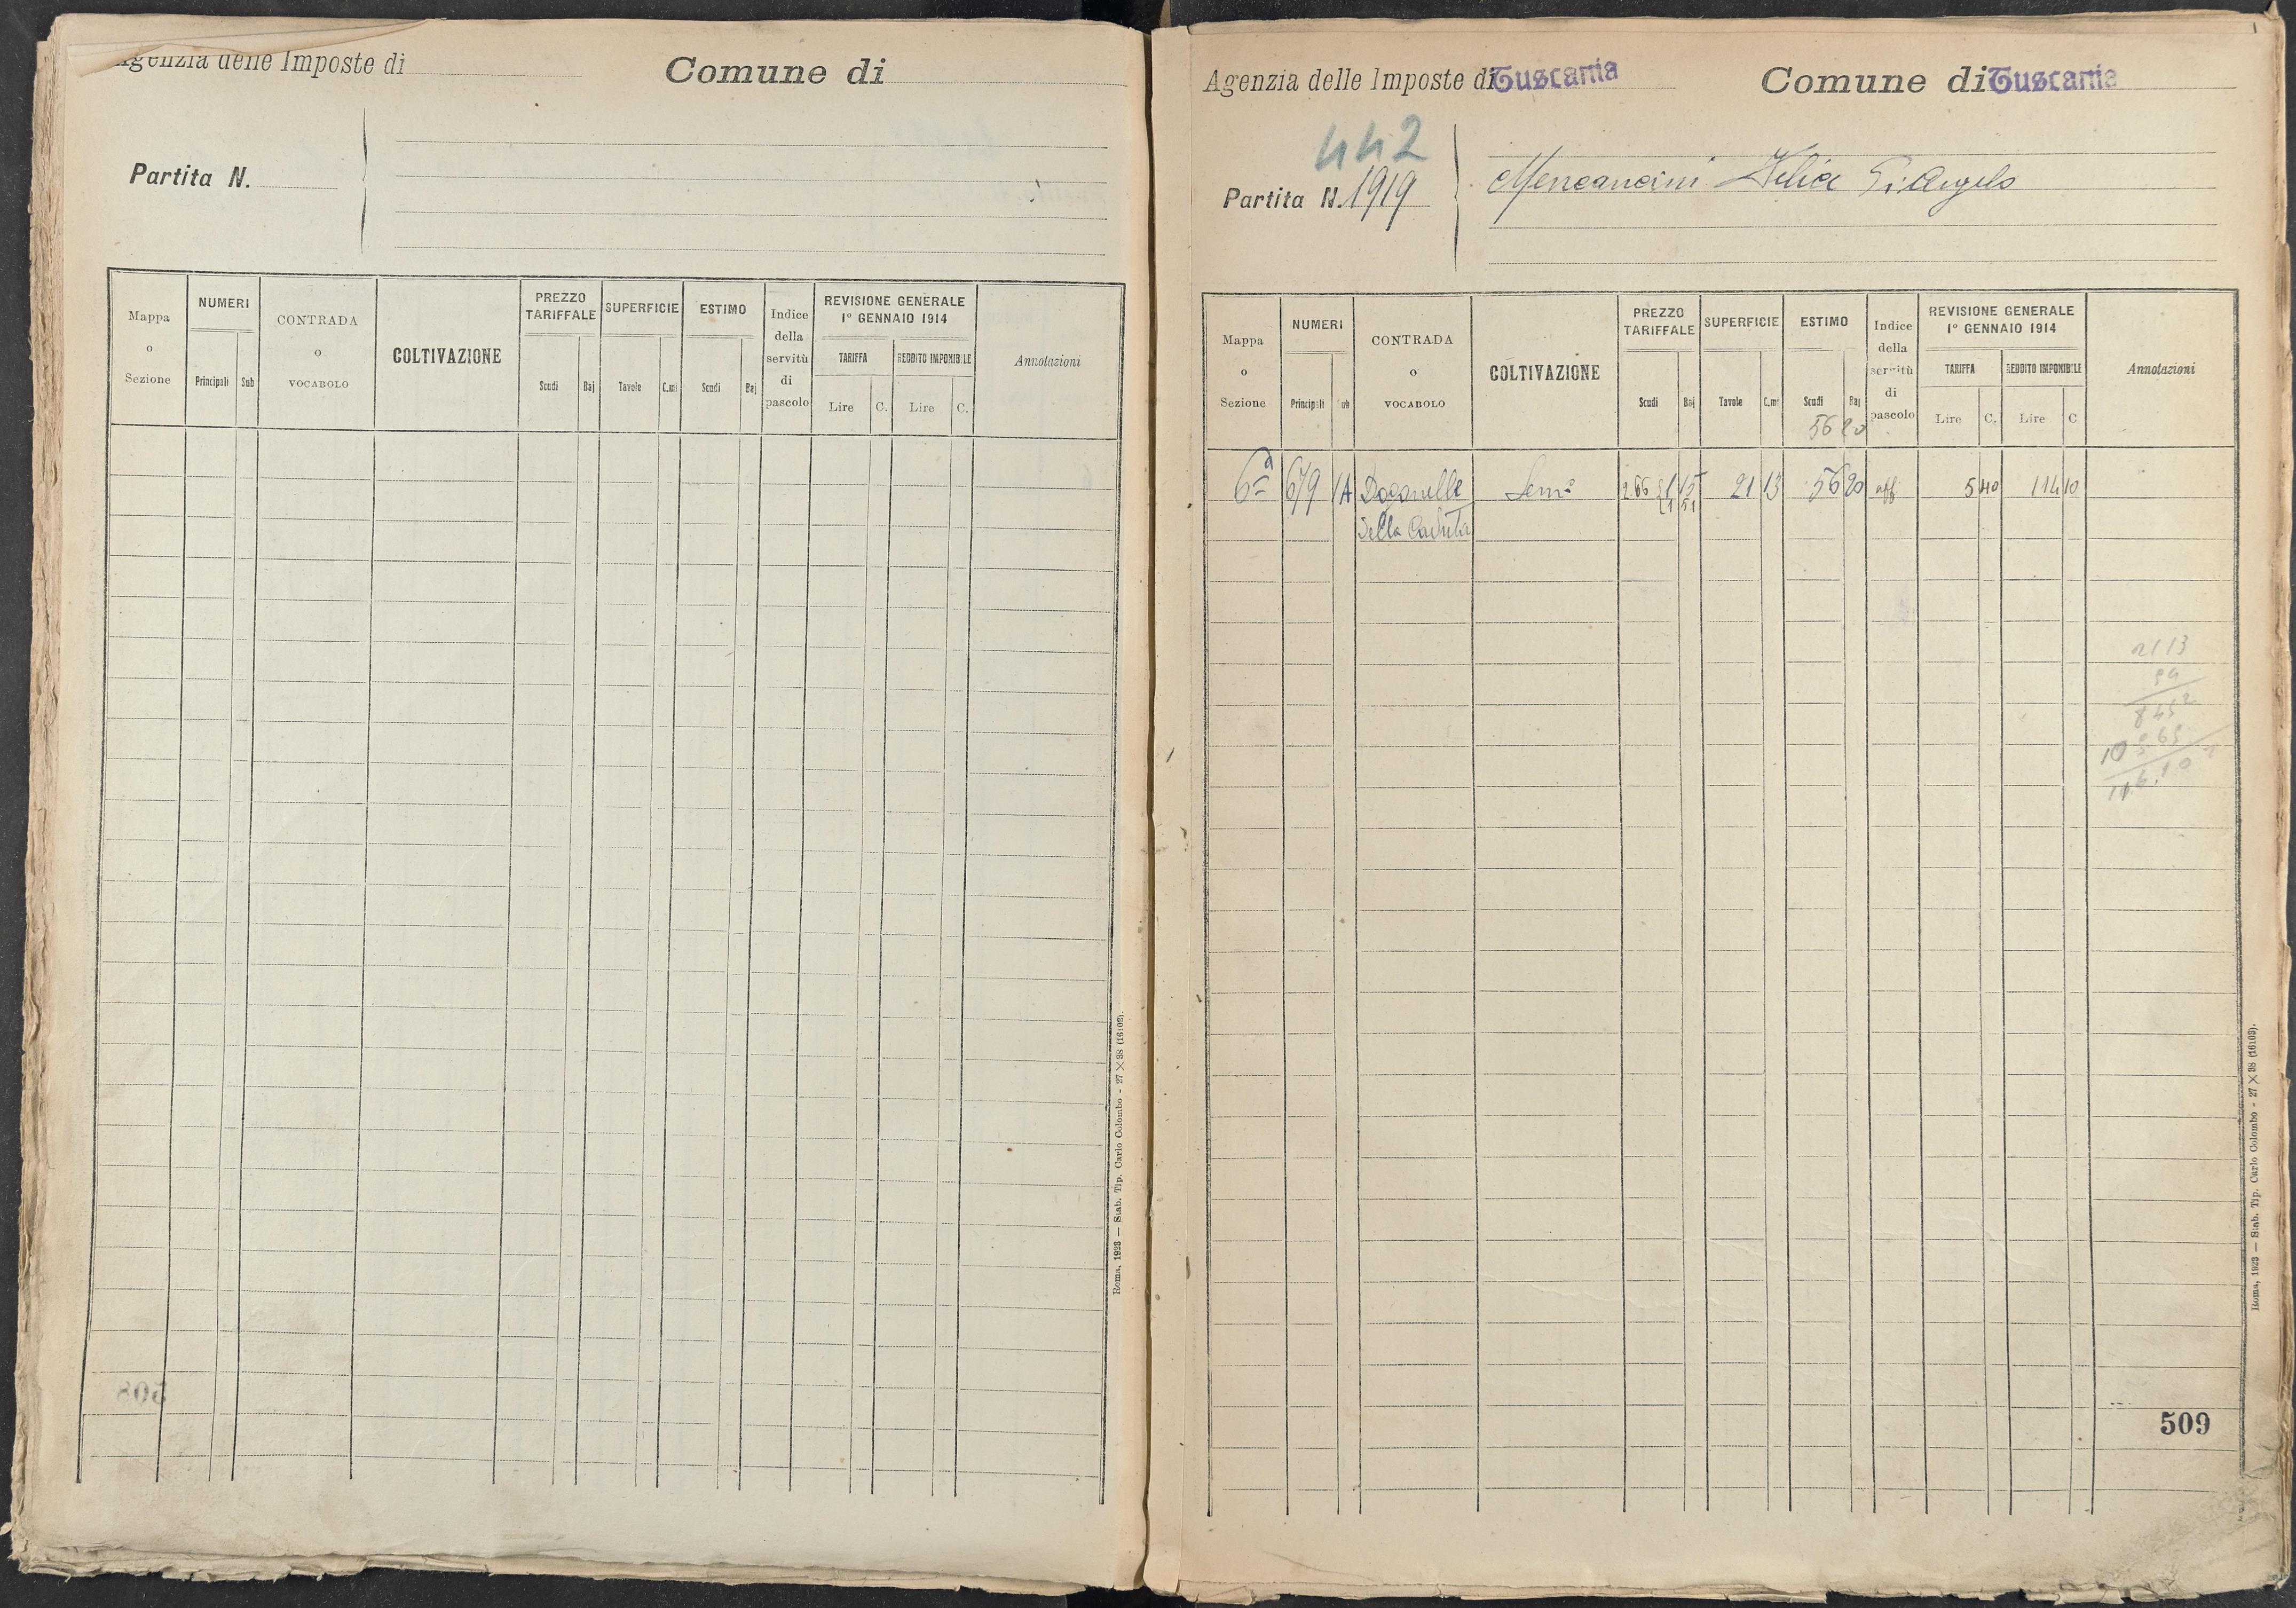 Agenzia delle Imposte di
Comune di
Partita N.
Mappa o Sezione
NUMERI
Principali
Sub
CONTRADA o VOCABOLO
COLTIVAZIONE
PREZZO TARIFFALE
Scudi
Baj
SUPERFICIE
Tavole
C.mi
ESTIMO
Scudi
Baj
Indice della servitù di pascolo
REVISIONE GENERALE
1° GENNAIO 1914
TARIFFA
Lire
C.
REDDITO IMPONIBILE
Lire
C.
Annotazioni
Roma, 1923 — Stab. Tip. Carlo Colombo - 27 × 38 (16103).
508
Agenzia delle Imposte di Tuscania
Comune di Tuscania
442
Partita N. 1919
Mencancini Di Angelo
Mappa o Sezione
NUMERI
Principali
Sub
CONTRADA o VOCABOLO
COLTIVAZIONE
PREZZO TARIFFALE
Scudi
Baj
SUPERFICIE
Tavole
C.mi
ESTIMO
Scudi
Baj
56 20
Indice della servitù di pascolo
REVISIONE GENERALE
1° GENNAIO 1914
TARIFFA
Lire
C.
REDDITO IMPONIBILE
Lire
C
Annotazioni
6ª 679 1A Doganelle Semo 2 66 1 15 21 13 56 20 aff 5 40 114 10
1 51
della Caduta
2113
54
8452
509
Roma, 1923 — Stab. Tip. Carlo Colombo - 27 × 38 (16103).